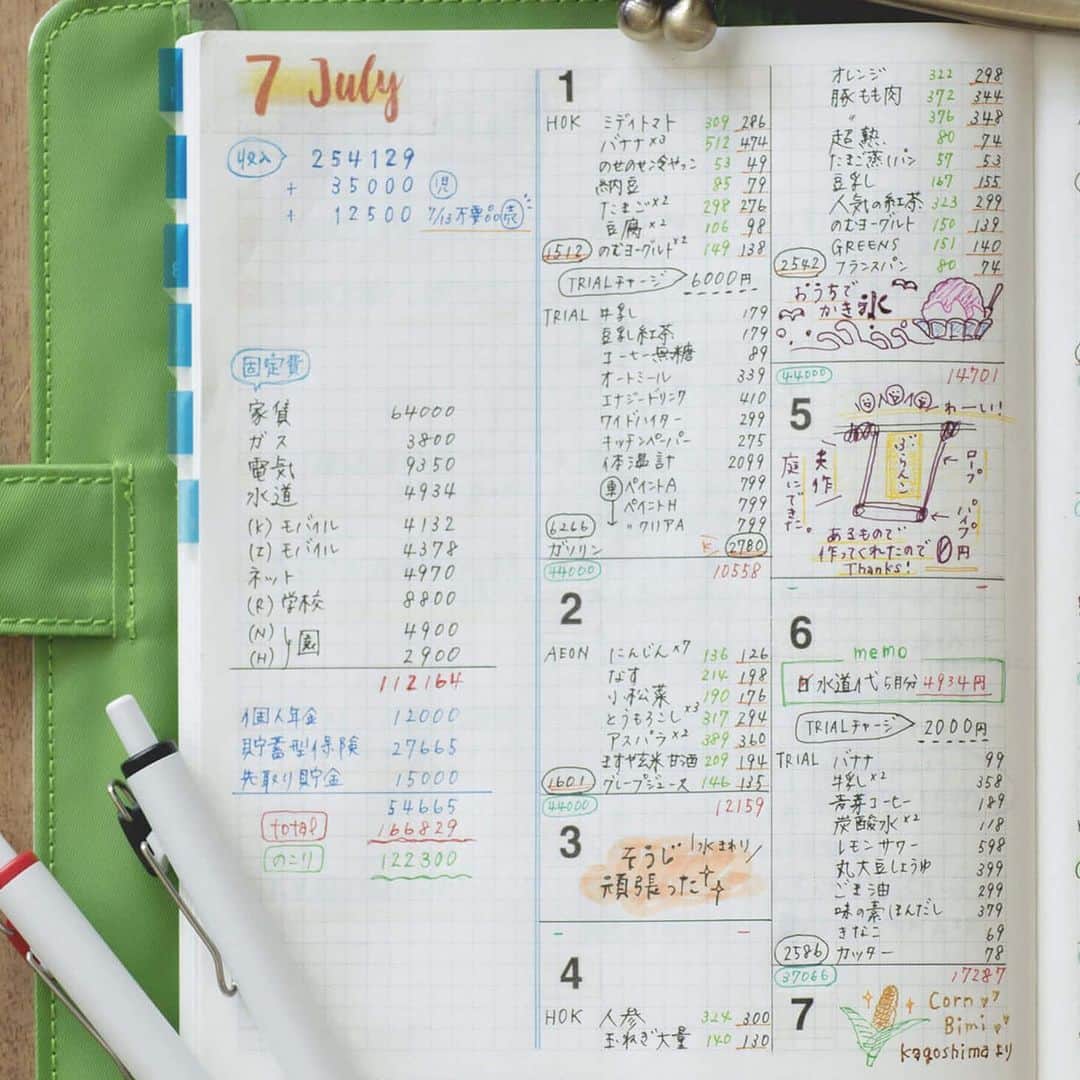 7 July
収入 254129
+ 35000 児
+ 12500 7/13不要品売
固定費
家賃 64000
ガス 3800
電気 9350
水道 4934
(K) モバイル 4132
(I) モバイル 4378
ネット 4970
(R) 学校 8800
(N) 4900
(H) 園 2900
112164
個人年金 12000
貯蓄型保険 27665
先取り貯金 15000
54665
total 166829
のこり 122300
1
HOK ミディトマト 309 286
バナナ×3 512 474
のせのせ冷やっこ 53 49
納豆 85 79
たまご×2 298 276
豆腐×2 106 98
1512 のむヨーグルト×2 149 138
TRIALチャージ 6000円
TRIAL 牛乳 179
豆乳紅茶 179
コーヒー無糖 89
オートミール 339
エナジードリンク 410
ワイドハイター 299
キッチンペーパー 275
体温計 2099
車 ペイントA 799
ペイントH 799
6266 〃クリアA 799
ガソリン K 2780
44000 10558
2
AEON にんじん×7 136 126
なす 214 198
小松菜 190 176
とうもろこし×3 317 294
アスパラ×2 389 360
ますや玄米甘酒 209 194
1601 グレープジュース 146 135
44000 12159
3
そうじ 水まわり
頑張った
4
HOK 人参 324 300
玉ねぎ大量 140 130
オレンジ 322 298
豚もも肉 372 344
〃 376 348
超熟 80 74
たまご蒸しパン 57 53
豆乳 167 155
人気の紅茶 323 299
のむヨーグルト 150 139
GREENS 151 140
2542 フランスパン 80 74
おうちで
かき氷
44000 14701
5
わーい!
ぶらんこ
夫作
庭にできた。
ロープ
パイプ
あるもので
作ってくれたので 0円
Thanks!
6
memo
水道代 5月分 4934円
TRIALチャージ 2000円
TRIAL バナナ 99
牛乳×2 358
若芽コーヒー 189
炭酸水×2 118
レモンサワー 598
丸大豆しょうゆ 399
ごま油 299
味の素ほんだし 379
きなこ 69
2586 カッター 78
37066 17287
7
Corn
Bimi
Kagoshimaより